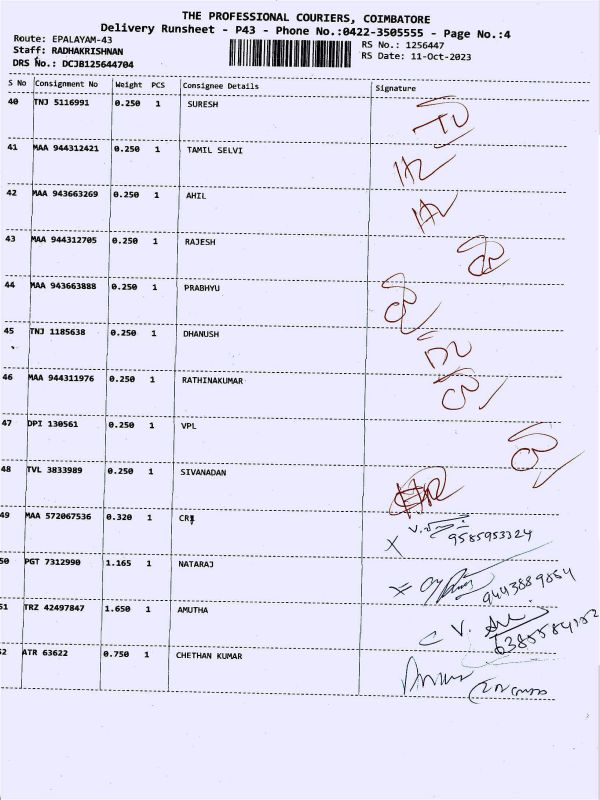 THE PROFESSIONAL COURIERS, COIMBATORE
Delivery Runsheet - P43 - Phone No.:0422-3505555 - Page No.:4
Route: EPALAYAM-43
RS No.: 1256447
Staff: RADHAKRISHNAN
RS Date: 11-Oct-2023
DRS No.: DCJB125644704
S No Consignment No Weight PCS Consignee Details Signature
40 TNJ 5116991 0.250 1 SURESH
41 MAA 944312421 0.250 1 TAMIL SELVI
42 MAA 943663269 0.250 1 AHIL
43 MAA 944312705 0.250 1 RAJESH
44 MAA 943663888 0.250 1 PRABHYU
45 TNJ 1185638 0.250 1 DHANUSH
46 MAA 944311976 0.250 1 RATHINAKUMAR
47 DPI 130561 0.250 1 VPL
48 TVL 3833989 0.250 1 SIVANADAN
49 MAA 572067536 0.320 1 CRI
9585953324
50 PGT 7312990 1.165 1 NATARAJ
9443889854
51 TRZ 42497847 1.650 1 AMUTHA
V.
52 ATR 63622 0.750 1 CHETHAN KUMAR